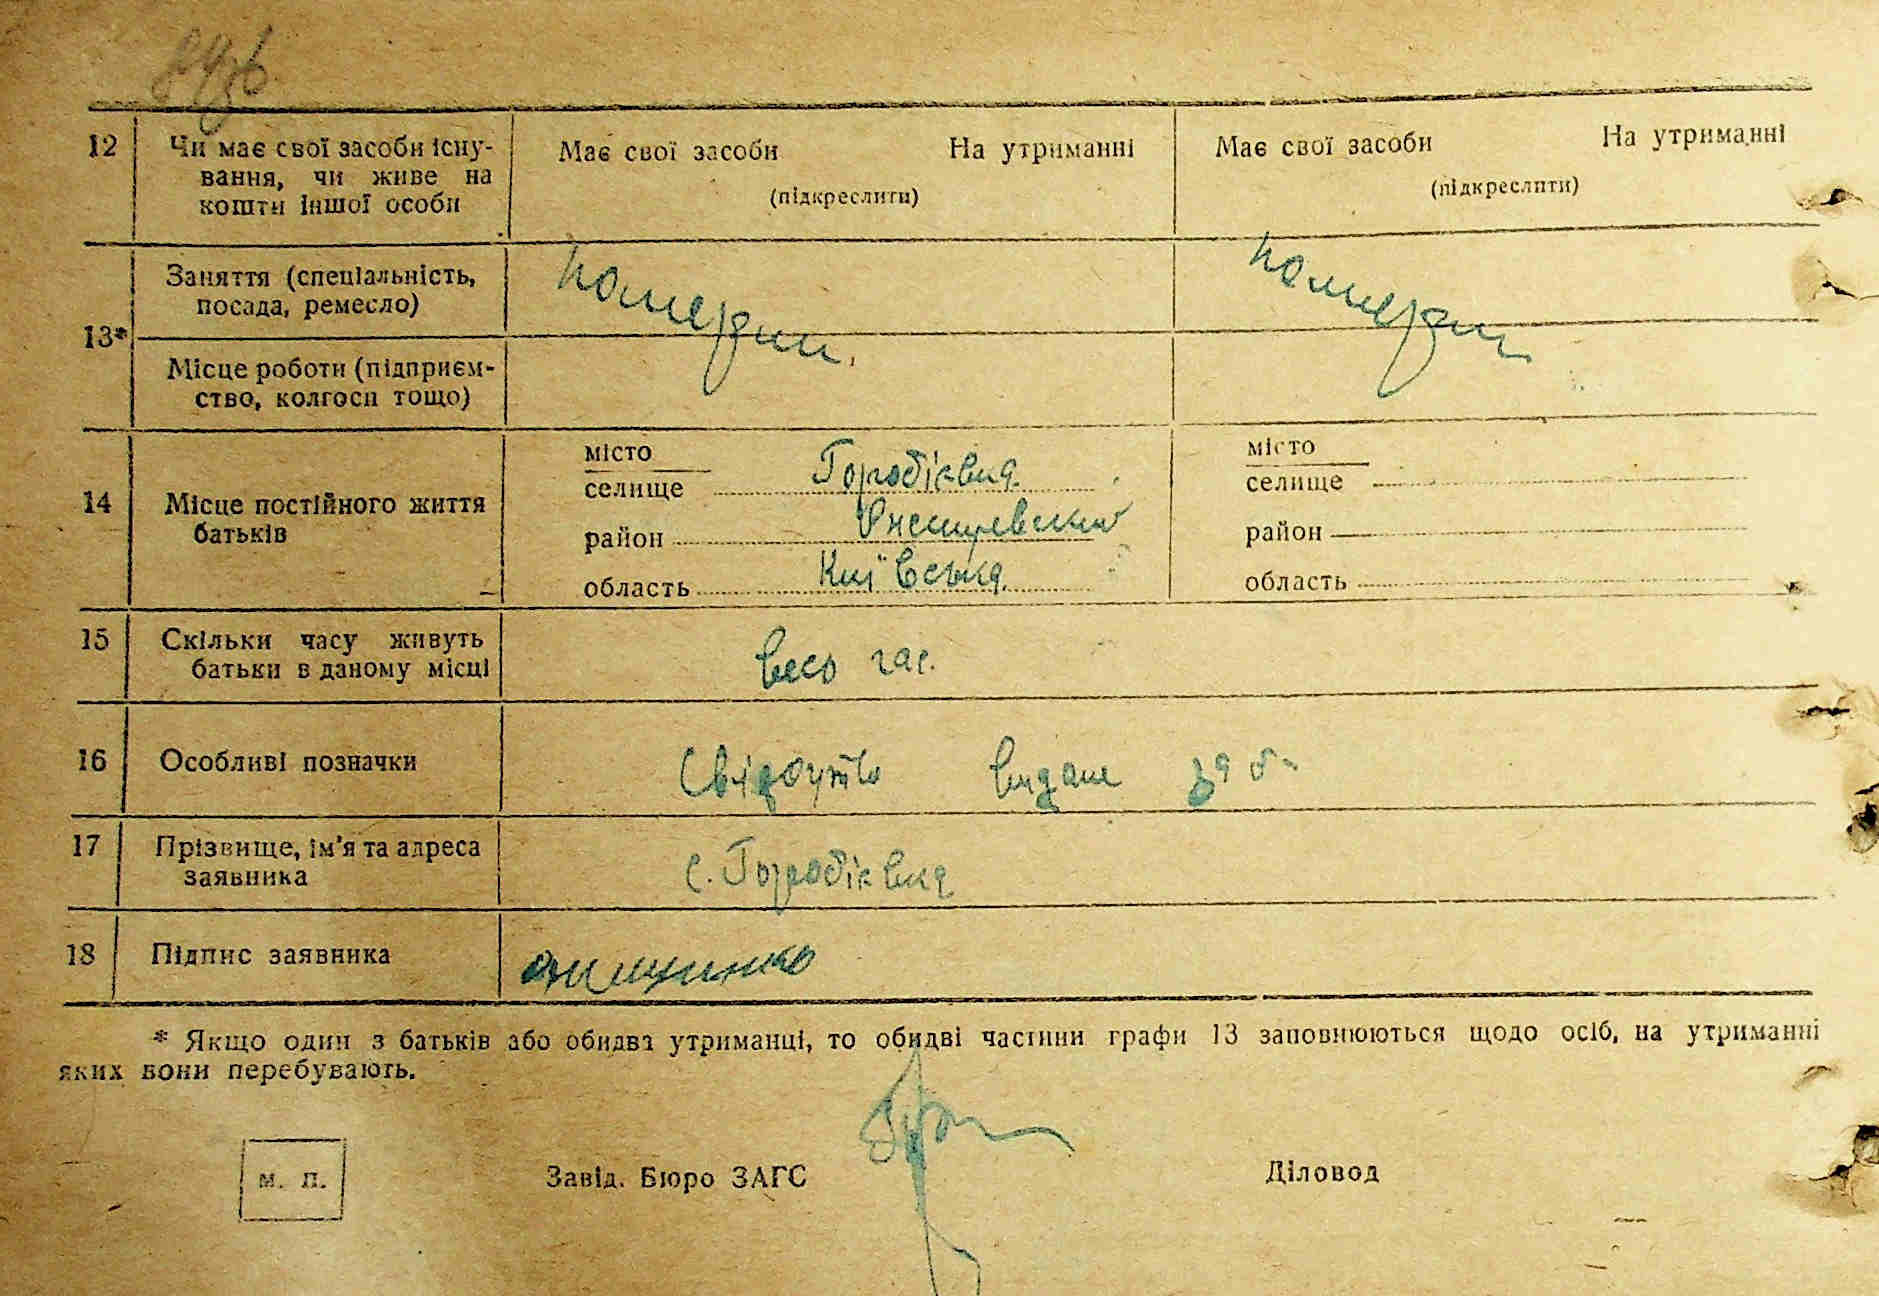 12 Чи має свої засоби існу- Має свої засоби На утриманні Має свої засоби На утриманні
вання, чи живе на
кошти іншої особи (підкреслити) (підкреслити)
Заняття (спеціальність,
посада, ремесло)
13*
Місце роботи (підприєм-
ство, колгосп тощо)
місто місто
селище Городієвка селище
14 Місце постійного життя
батьків
район район
область Київська область
15 Скільки часу живуть
батьки в даному місці весь час.
16 Особливі позначки Свідоцтво видане за б-
17 Прізвище, ім'я та адреса
заявника с. Городієвка
18 Підпис заявника
* Якщо один з батьків або обидва утриманці, то обидві частини графи 13 заповнюються щодо осіб, на утриманні
яких вони перебувають.
м. п. Завід. Бюро ЗАГС Діловод